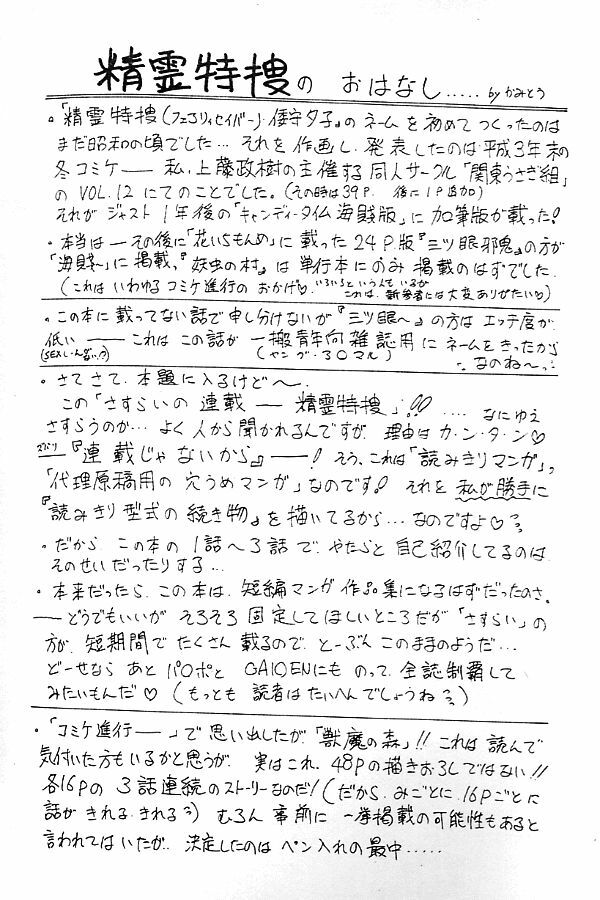 精霊特捜の おはなし..... by かみとう
。「精霊特捜(フェアリィセイバー)倭守夕子』のネームを初めてつくったのは
まだ昭和の頃でした… それを作画し、発表したのは平成3年末の
冬コミケ── 私、上藤政樹の主催する同人サークル「関東うさぎ組」
の VOL.12 にてのことでした。(その時は39P. 後に1P追加)
それがジャスト1年後の「キャンディータイム海賊版」に加筆版が載った!
。本当は──その後に「花いちもんめ」に載った24P版『三ツ眼邪鬼』の方が
「海賊〜」に掲載、『妖虫の村』は単行本にのみ掲載のはずでした.
(これはいわゆるコミケ進行のおかげ♡ いろいろという人もいるが これは、新参者には大変ありがたい♡)
。この本に載ってない話で申し分けないが『三ツ眼〜』の方はエッチ度が
低い ── これはこの話が一般青年向雑誌用にネームをきったから
(SEXしーんない?) (ヤング・30マル) なのね〜
。さてさて、本題に入るけど〜.
この「さすらいの連載 ── 精霊特捜」!! .... なにゆえ
さすらうのか… よく人から聞かれるんですが、理由はカ・ン・タ・ン♡
ズバリ『連載じゃないから』──! そう、これは「読みきりマンガ」、
「代理原稿用の穴うめマンガ」なのです! それを私が勝手に
『読みきり型式の続き物』を描いてるから… なのですよ♡
。だから、この本の1話〜3話で、やたらと自己紹介してるのは
そのせいだったりする…
。本来だったら、この本は、短編マンガ作品集になるはずだったのさ。
── どうでもいいが そろそろ固定してほしいところだが「さすらい」の
方が、短期間でたくさん載るので、とーぶんこのままのようだ…
どーせなら あと パロポと GAIDENにも のって、全誌制覇して
みたいもんだ♡ (もっとも 読者はたいへんでしょうね)
。「コミケ進行── 」で思い出したが「獣魔の森」!! これは読んで
気付いた方もいるかと思うが、実はこれ、48Pの描きおろしではない!!
各16Pの3話連続のストーリーなのだ! (だから、みごとに16Pごとに
話がきれる、きれる) むろん事前に一挙掲載の可能性もあると
言われてはいたが、決定したのはペン入れの最中.....